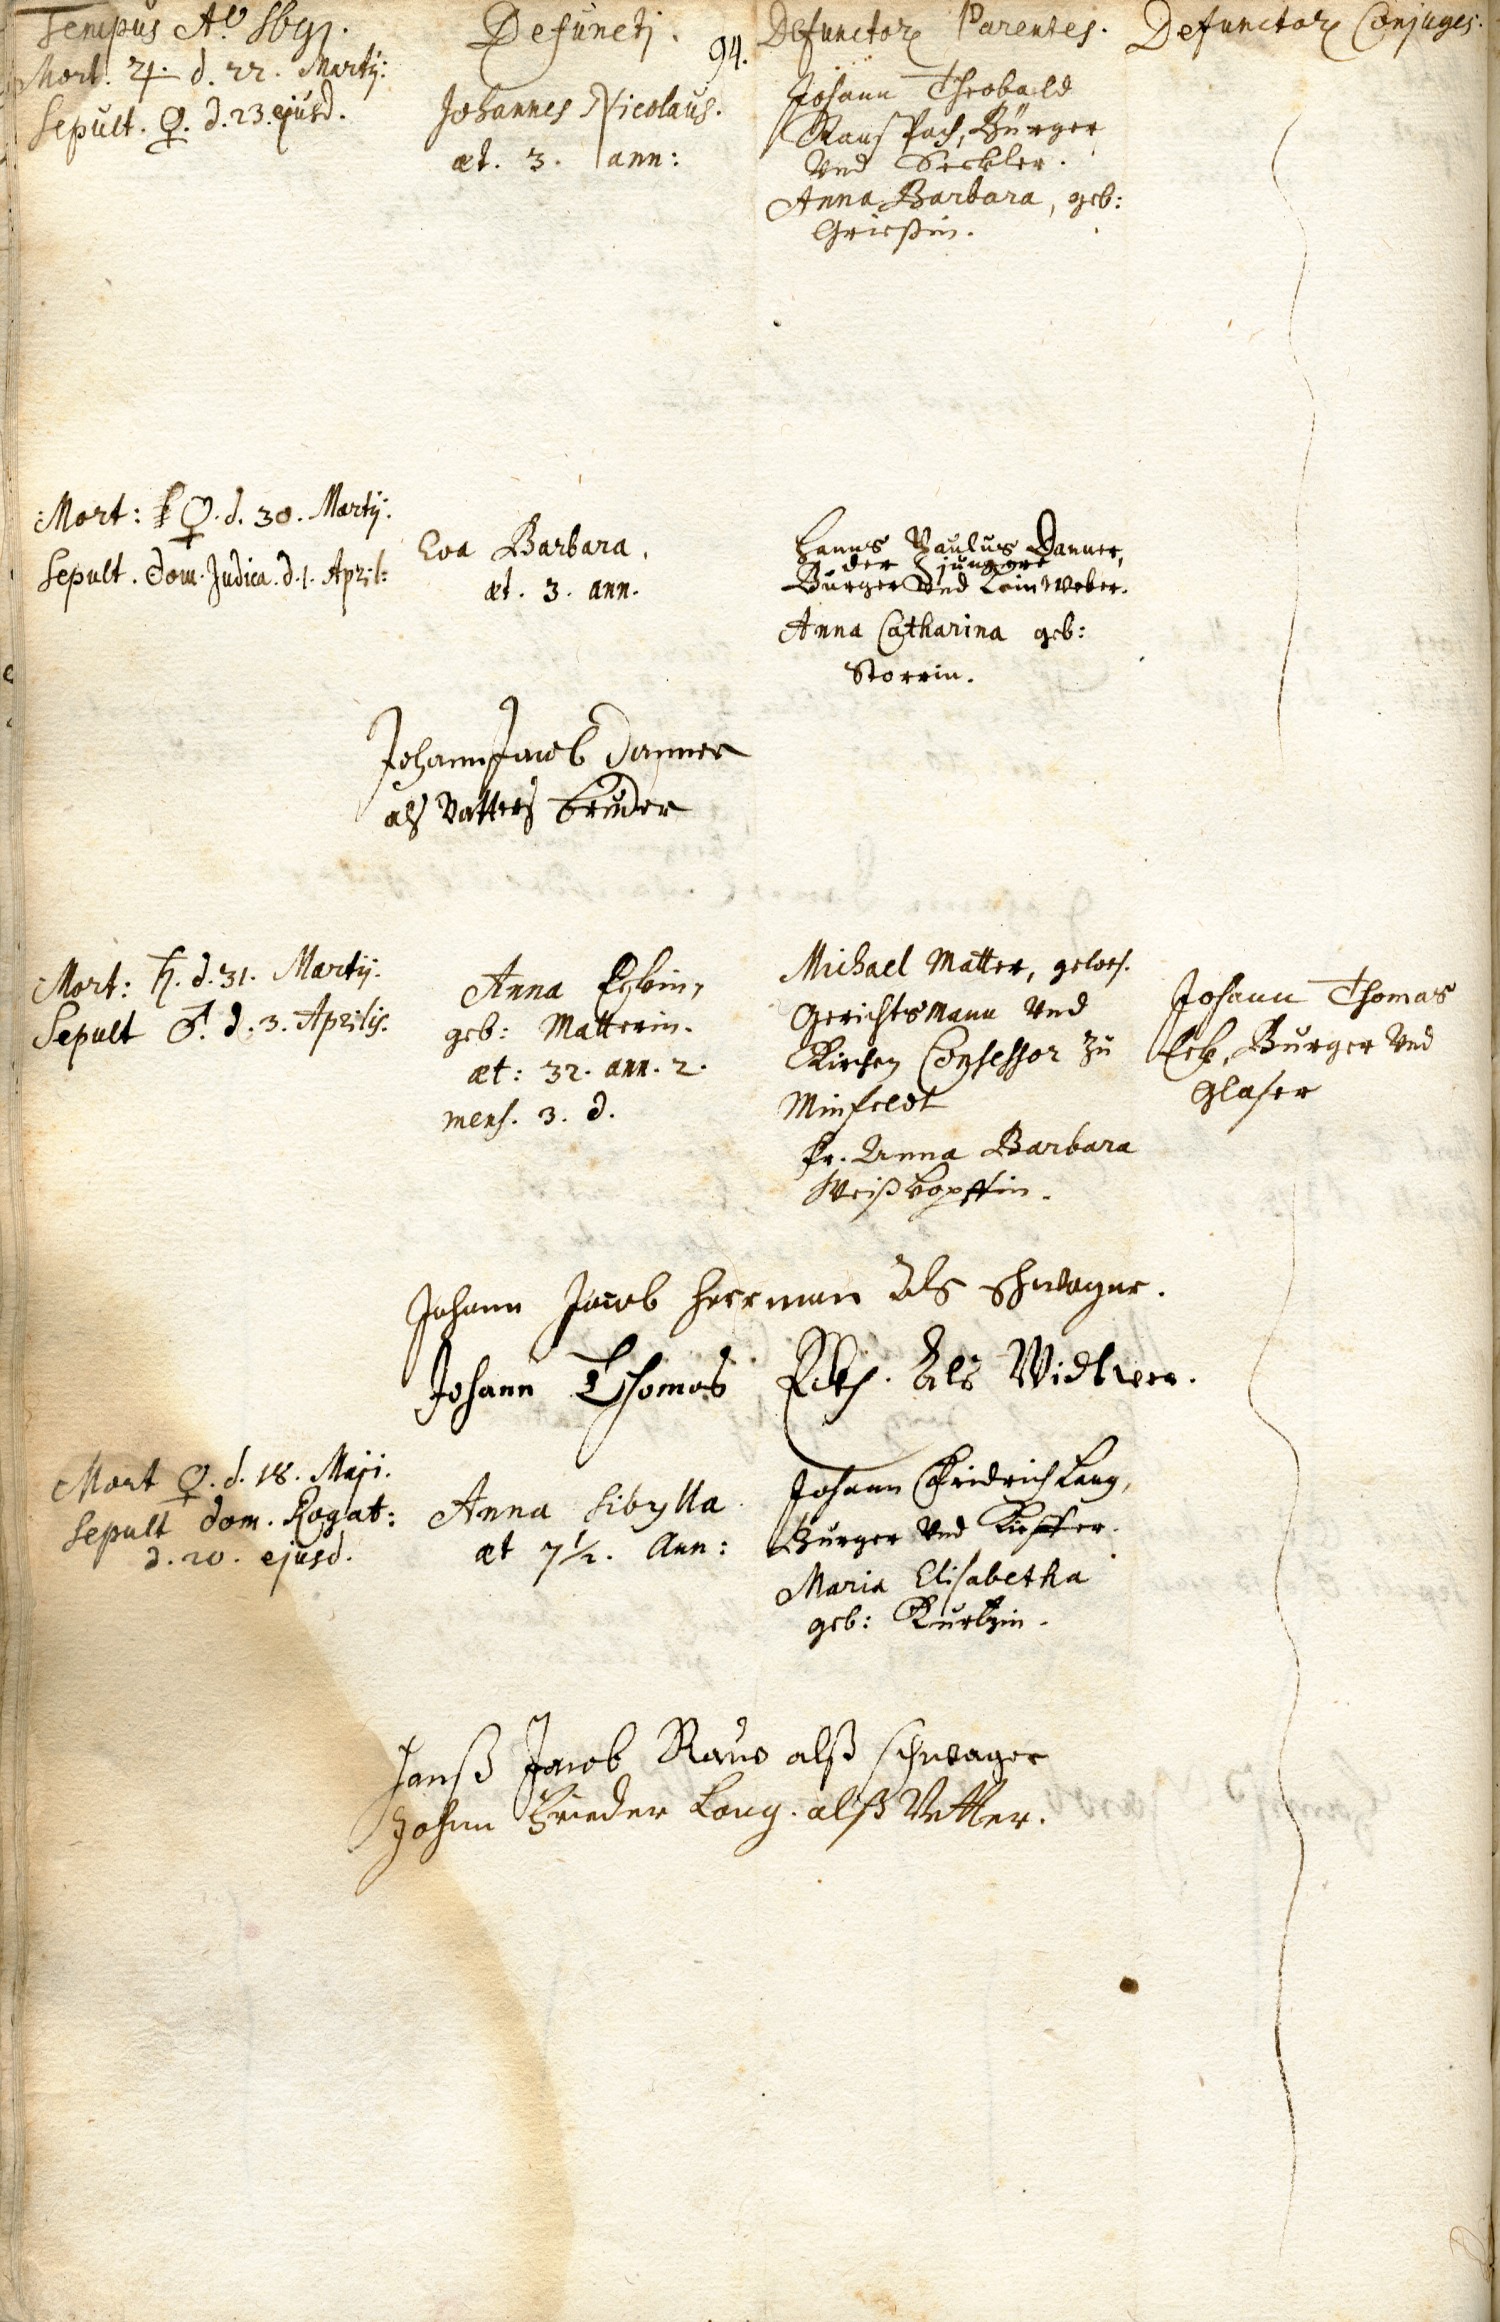 Tempus Aō
Defuncti.
94.
Defunctorꝝ Parentes.
Defunctorꝝ Conjuges.
Mort. ♃. d. 22. Martij:
Sepult. ♀. d. 23. ejusd.
Johannes Nicolaus.
æt. 3. ann:
Johann Theobald
Rauspach, Bürger
Und Seckler.
Anna Barbara, geb:
Grießin.
Mort: ♀. d. 30. Martij.
Sepult. Dom. Judica. d. 1. April:
Eva Barbara.
æt. 3. ann.
Hanns Paulus Danner,
der jüngere
Burger Und Leinweber.
Anna Catharina geb:
Storrin.
Johann Jacob Danner
als Vatters bruder
Mort: ♄. d. 31. Martij.
Sepult ♂. d. 3. Aprilis.
Anna
geb: Matterin.
æt: 32. ann. 2.
mens. 3. d.
Michael Matter, geweſ.
Gerichtsmann Und
Kirchen Censor zu
Minfeldt
Fr. Anna Barbara
Weißkopffin.
Johann Thomas
Eck, Burger Und
Glaser
Johann Jacob Herrman Als Schwager.
Johann Thomas Als Widtwer.
Mort ♀. d. 18. Maji.
Sepult Dom. Rogat:
d. 20. ejusd.
Anna Sibylla
æt 7 1/2. Ann:
Johann Friedrich Lang,
Burger Und Kieffer.
Maria Elisabetha
geb: Kurtzin.
Hanß Jacob alß Schwager
Johann Frieder Lang. alß Vetter.